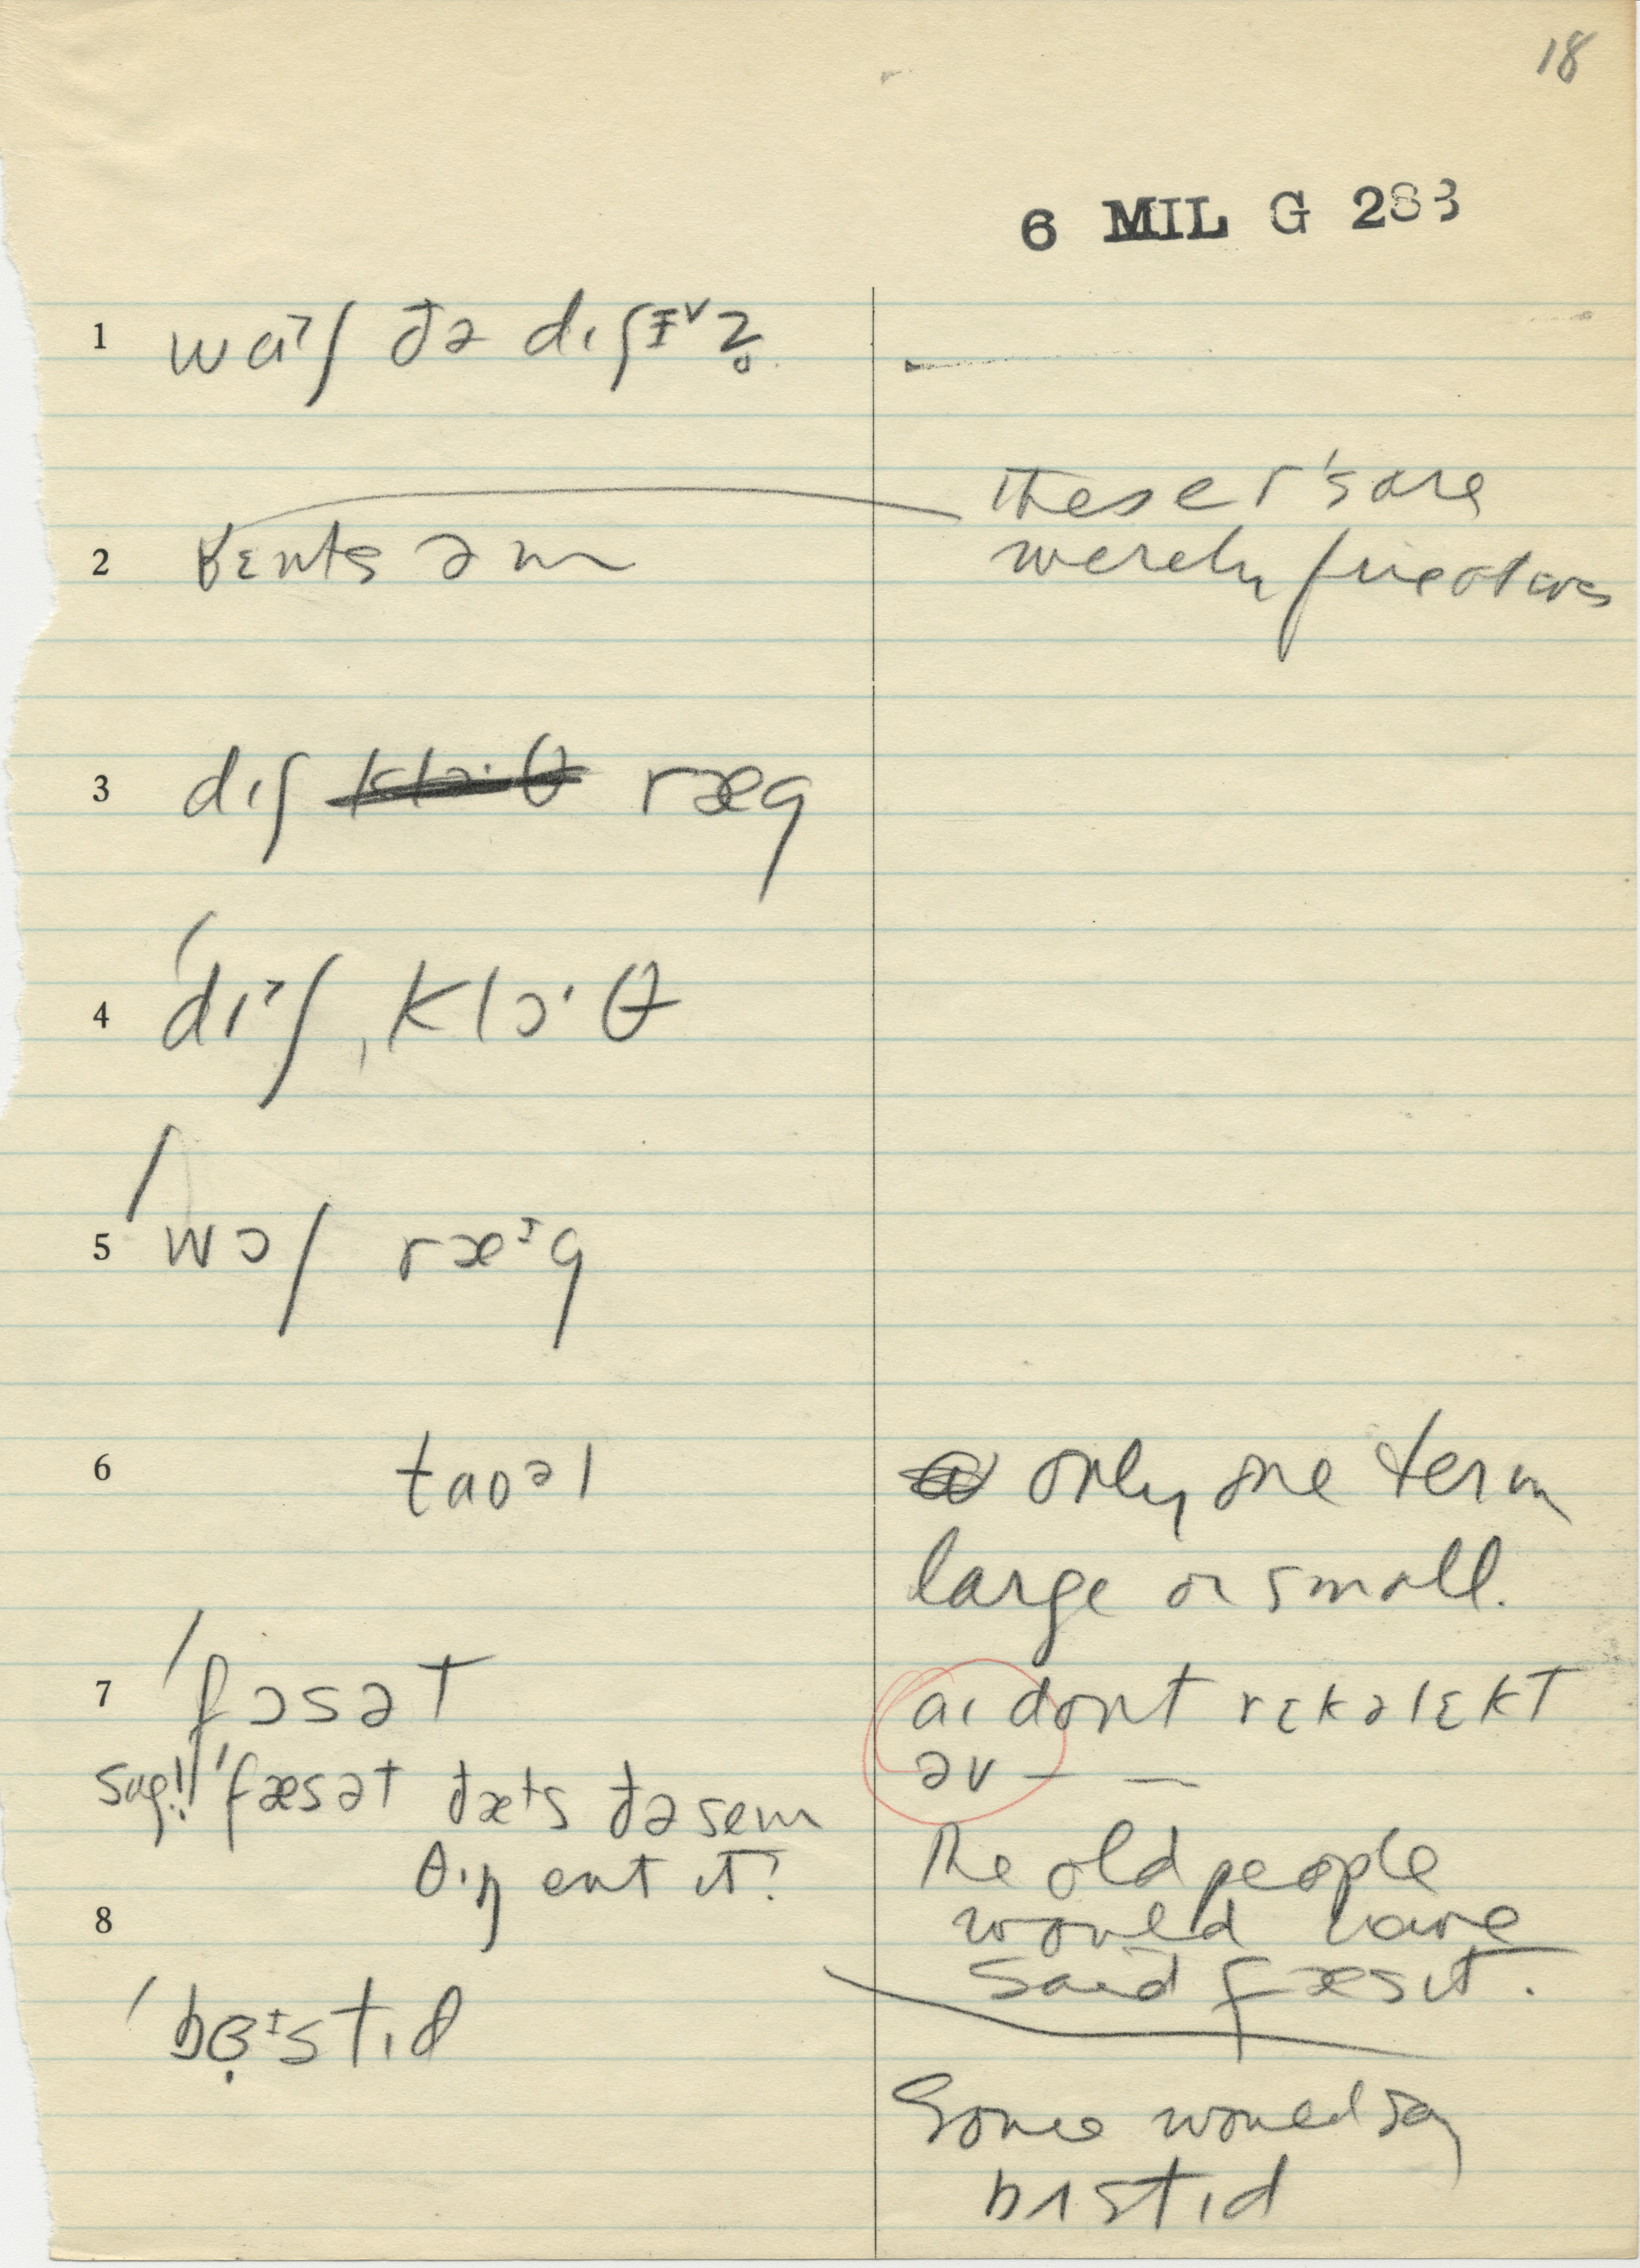 18
6 MIL G 283
1 wɑ˃ʃ ðə dıʃɪ˅z̥
these r's are
2 ɛnts əm
merely fricatives
3 dıʃ ~~klɔ·θ~~ ræg
4 ˈdı˃ʃ ˌklɔ·θ
5 ˈwɔʃ ræᶦg
6 taʊəl
only one term
large or small.
7 ˈfɔsət
aı dont rɛkəlɛkt
əv — —
sug!! ˈfæsət ðæts ðə sem
θıŋ ent ıt?
The old people
would have
said fæsıt.
8
ˈbɜ̣ᶦstıd
Some would say
bʌstıd